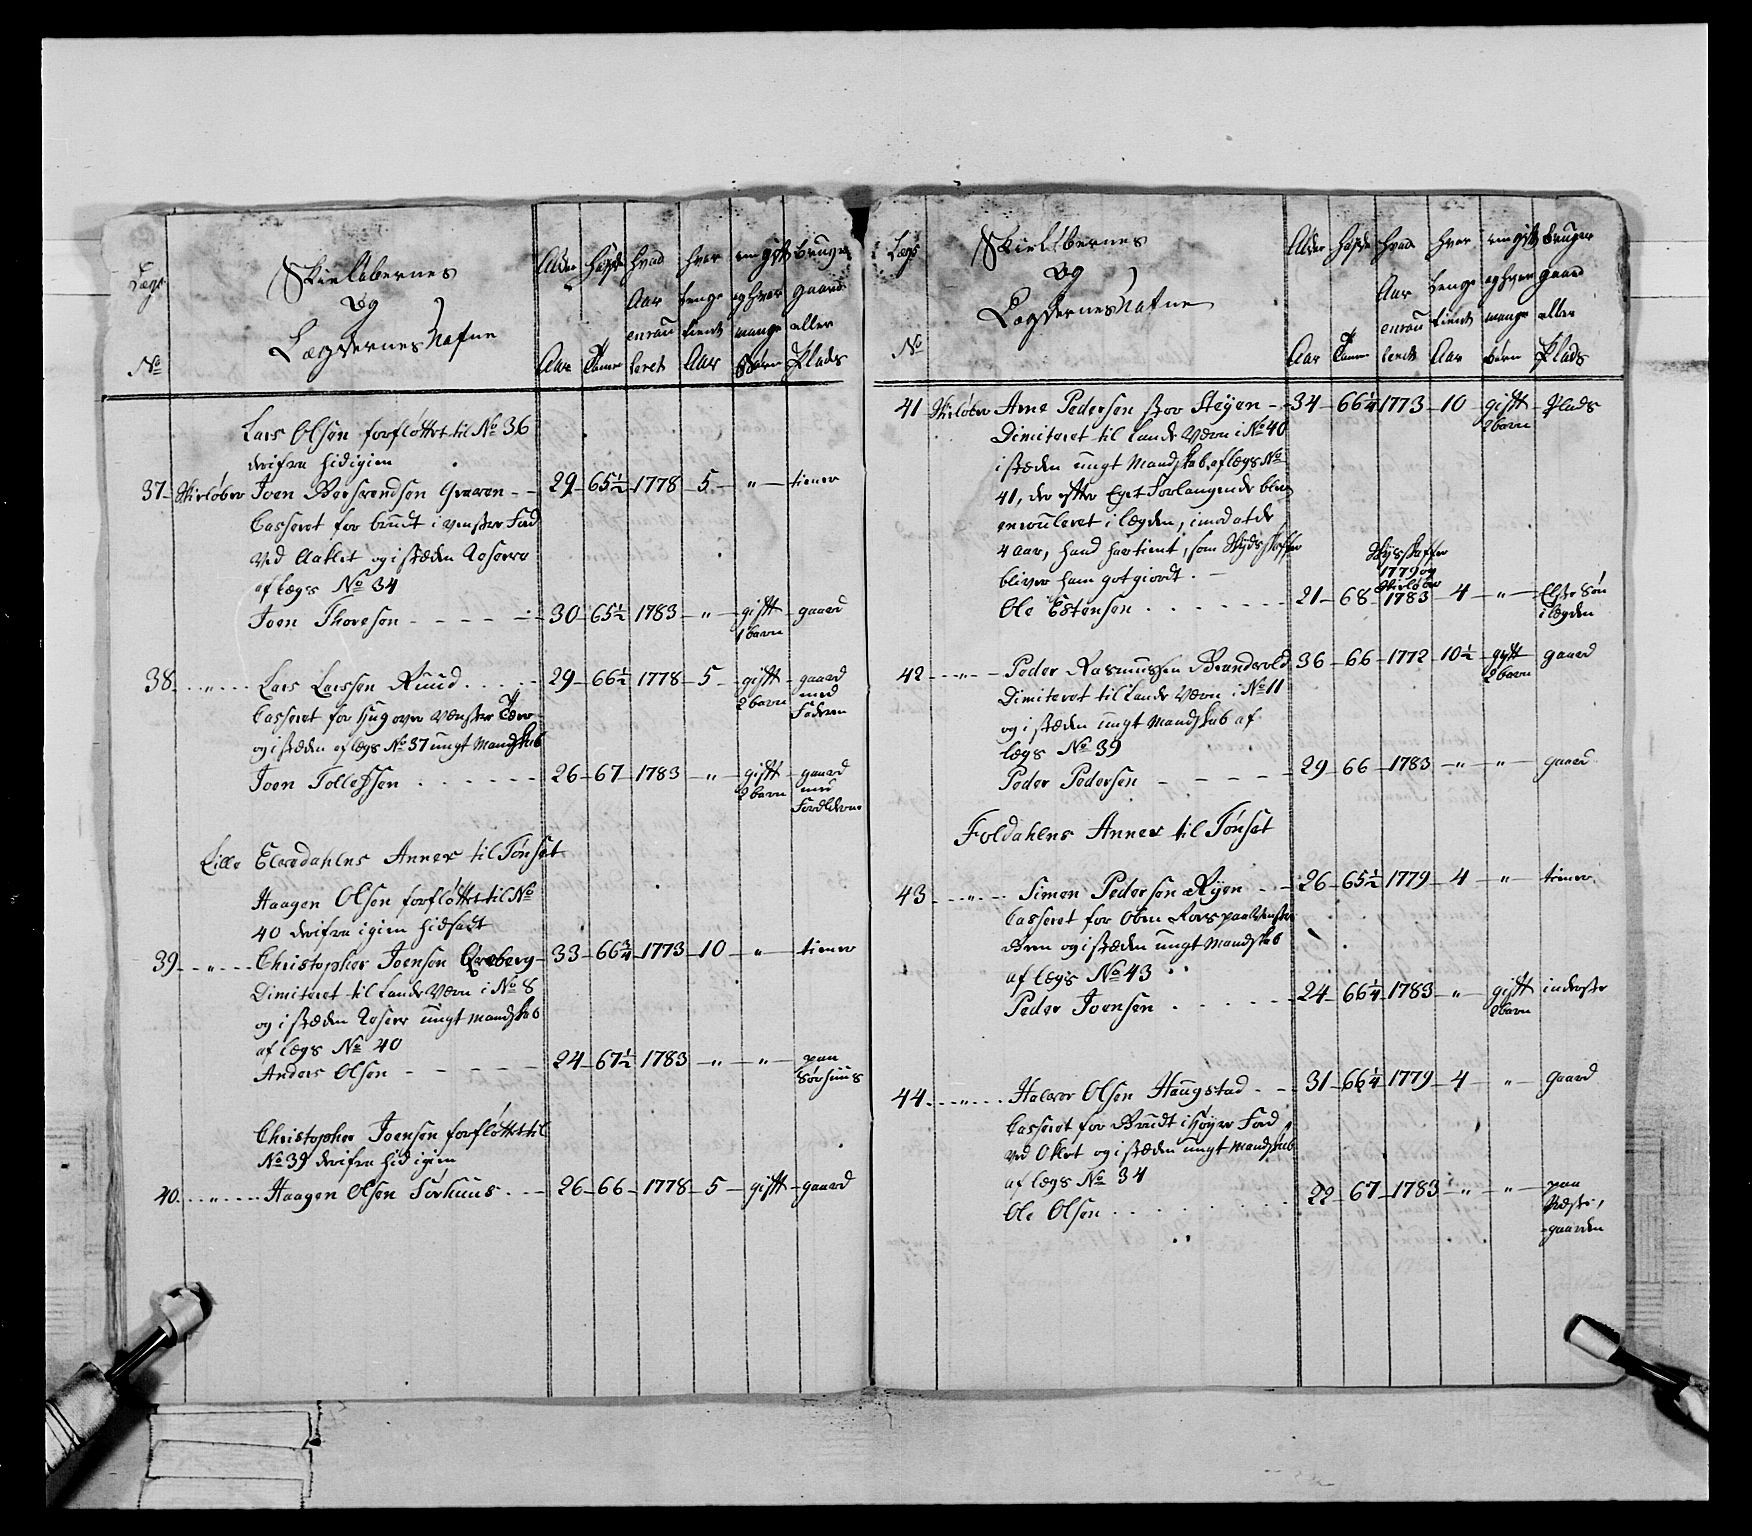 Lægs
No
Skieløbernes
og
Lægdernes Nafne
Alder
Aar
Høyde
Tomr
Hvad
Aar
enroul
leret
Hvor
lenge
tient
Aar
om gift
og hvor
mange
Børn
bruger
gaard
eller
Plads
Lars Olsen forfløttet til No 36
derifra hid igien
37 Skieløber Joen Bersvendsen Graven 29 65½ 1778 5 " tiener
Casseret for brudt i venstre Fod
ved Anklet og i stæden Reserve
af lægs No 34
Joen Thoresen 30 65½ 1783 " gift gaard
1 barn
38 " Lars Larssen Ruud 29 66½ 1778 5 gift gaard
2 barn med
Faderen
Casseret for Hug over venstre
og i stæden af lægs No 37 ungt Mandskab
Joen Tollefssen 26 67 1783 " gift gaard
2 barn med
Forældrene
Lille Elvedahlens Annex til Tønset
Haagen Olsen forfløttet til No
40 derifra igien hidsadt
39 " Christopher Joensen Qveberg 33 66¾ 1773 10 " tiener
Dimiteret til Lande Værn i No 8
og i stæden Reserv ungt Mandskab
af lægs No 40
Anders Olsen 24 67½ 1783 " " paa
Sørhuus
Christopher Joensen forfløttet til
No 39 derifra hid igien
40 " Haagen Olsen Sørhuus 26 66 1778 5 gift gaard
Lægs
No
Skieløbernes
og
Lægdernes Nafne
Alder
Aar
Høyde
Tomr
Hvad
Aar
enroul
leret
Hvor
lenge
tient
Aar
om gift
og hvor
mange
børn
bruger
gaard
eller
Plads
41 Skieløber Arne Pedersen stor Steyen 34 66¼ 1773 10 gift Plads
2 barn
Dimiteret til Lande Værn i No 40
i stæden ungt Mandskab af lægs No
41, der efter Eget Forlangende blev
enrouleret i lægden, imod at de
4 Aar, hand har tient, som Skydsskaffer
bliver ham got giordt.
Skydsskaffer
1779 og
Skieløber
Ole Estensen 21 68 1783 4 " Elste Søn
i lægden
42 " Peder Rasmussen Brandvold 36 66 1772 10½ gift gaard
2 barn
Dimiteret til Lande Værn i No 11
og i stæden ungt Mandskab af
lægs No 39
Peder Pedersen 29 66 1783 " " gaard
Foldahlens Annex til Tønset
43 " Simen Pedersen Ryen 26 65½ 1779 4 " tiener
Casseret for paa Venstre
Been og i stæden ungt Mandskab
af lægs No 43
Peder Joensen 24 66¼ 1783 " gift inderste
2 barn
44 " Halvor Olsen Haugstad 31 66¼ 1779 4 " gaard
Casseret for Brudt i Høyre Fod,
ved Oklet og i stæden ungt Mandskab
af lægs No 34
Ole Olsen 22 67 1783 " " paa
Præste,
gaarden